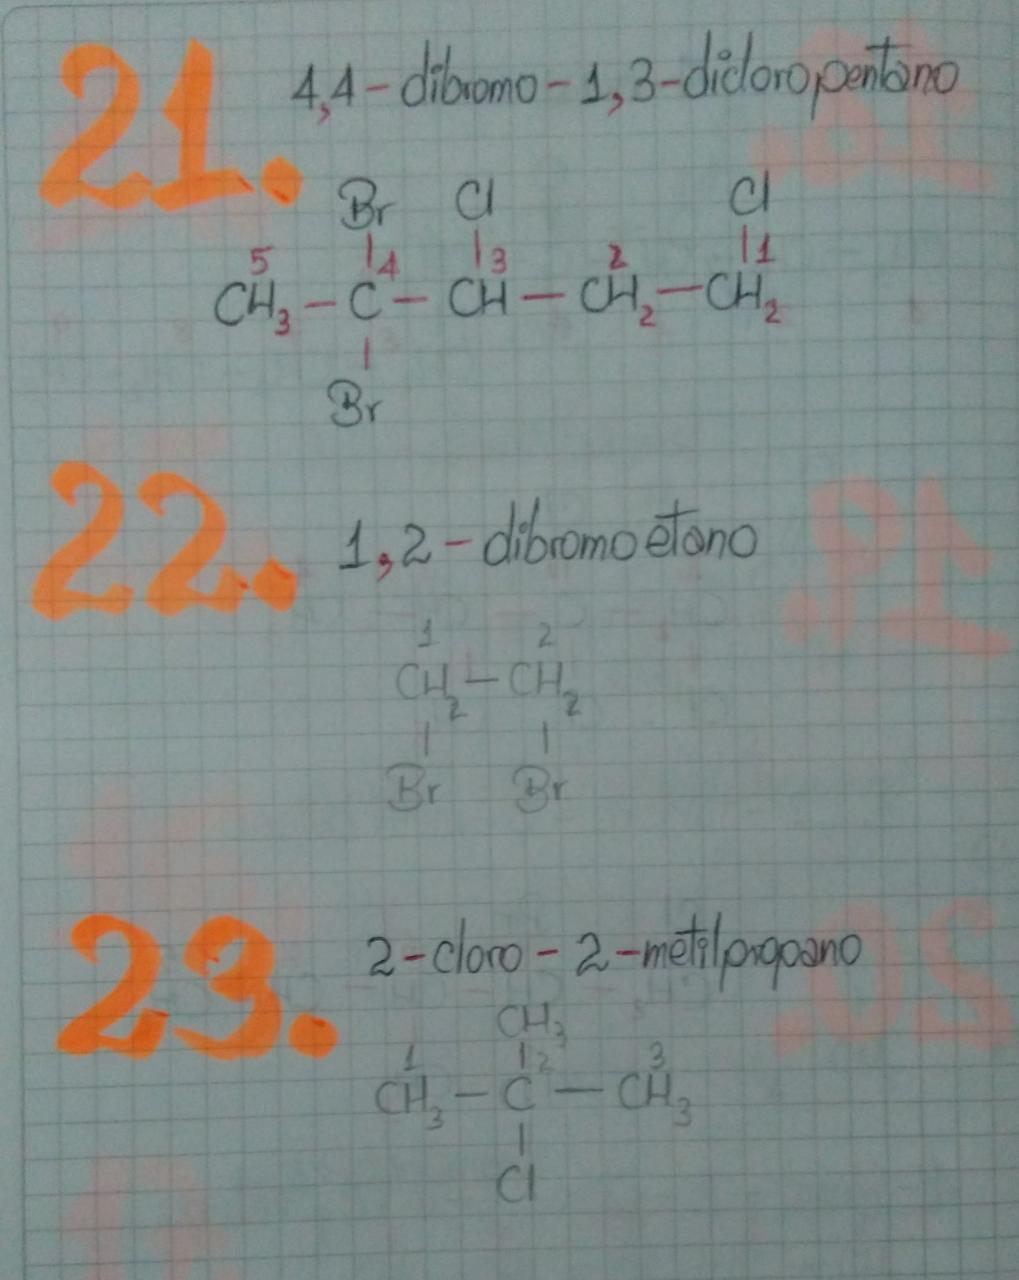 21. 4,4-dibromo-1,3-dicloropentano
Br Cl Cl
5 4 3 2 1
CH3 - C - CH - CH2 - CH2
Br
22. 1,2-dibromoetano
1 2
CH2 - CH2
Br Br
23. 2-cloro-2-metilpropano
CH3
1 2 3
CH3 - C - CH3
Cl